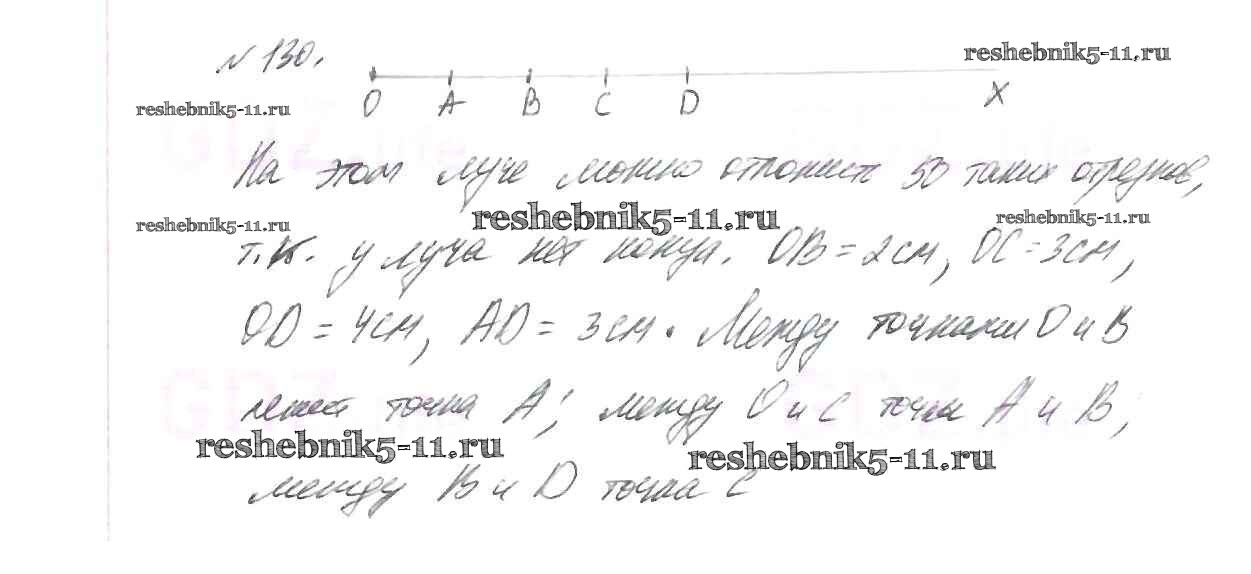 № 130.
reshebnik5-11.ru
reshebnik5-11.ru
O A B C D X
На этом луче можно отложить 50 таких отрезков,
reshebnik5-11.ru reshebnik5-11.ru reshebnik5-11.ru
т.к. у луча нет конца. OB = 2см, OC = 3см,
OD = 4см, AD = 3см. Между точками O и B
лежит точка A; между O и C точки A и B;
reshebnik5-11.ru reshebnik5-11.ru
между B и D точка C